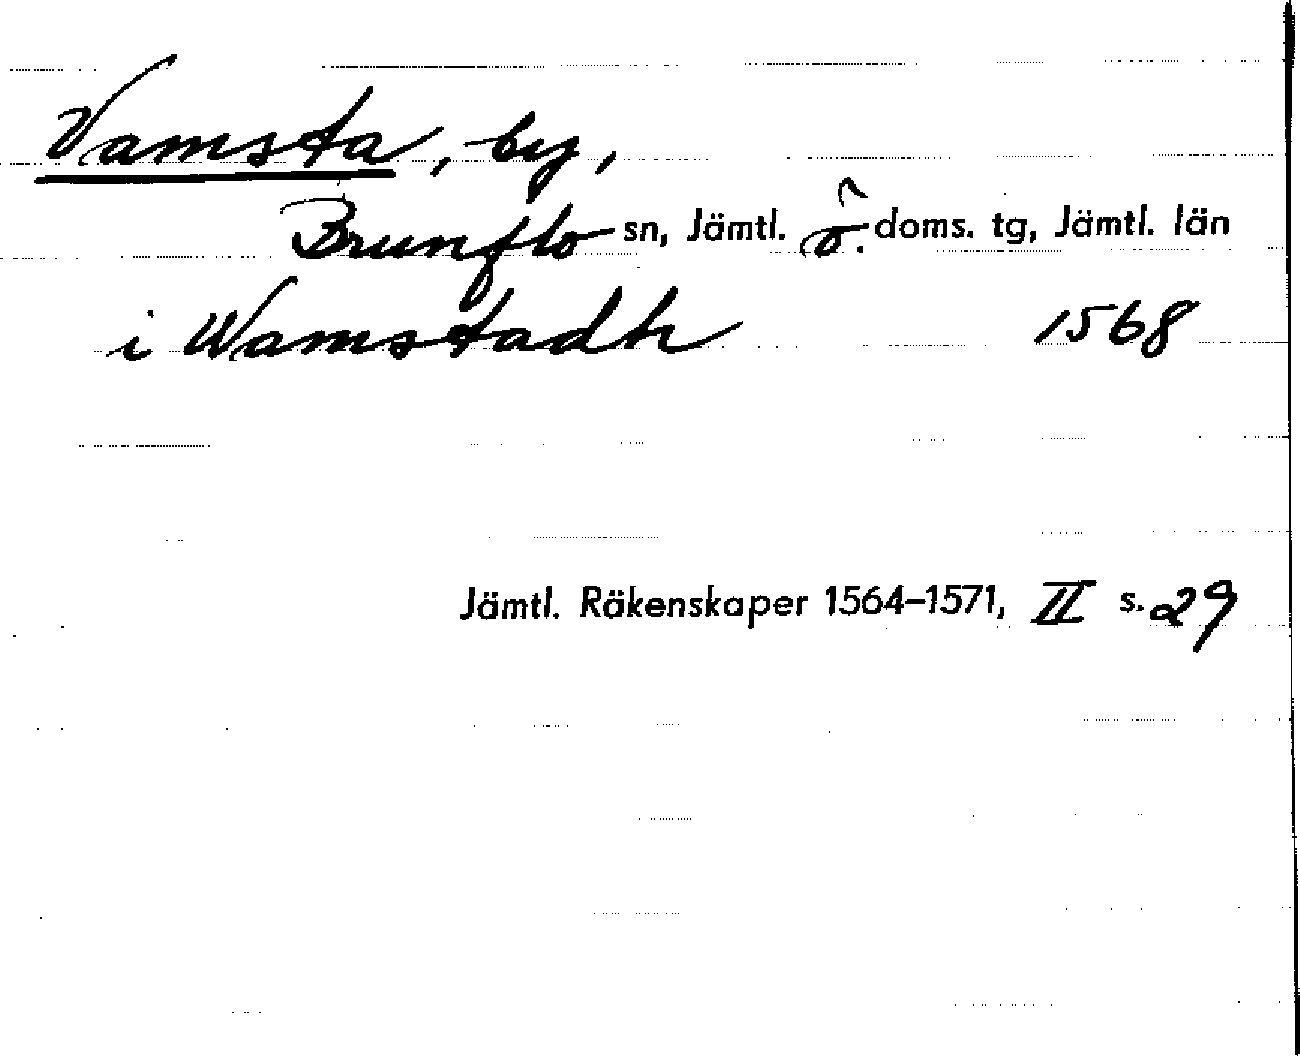 Vamsta, by,
Brunflo sn, Jämtl. ö. doms. tg, Jämtl. län
i Wamstadh 1568
Jämtl. Räkenskaper 1564-1571, II s. 29